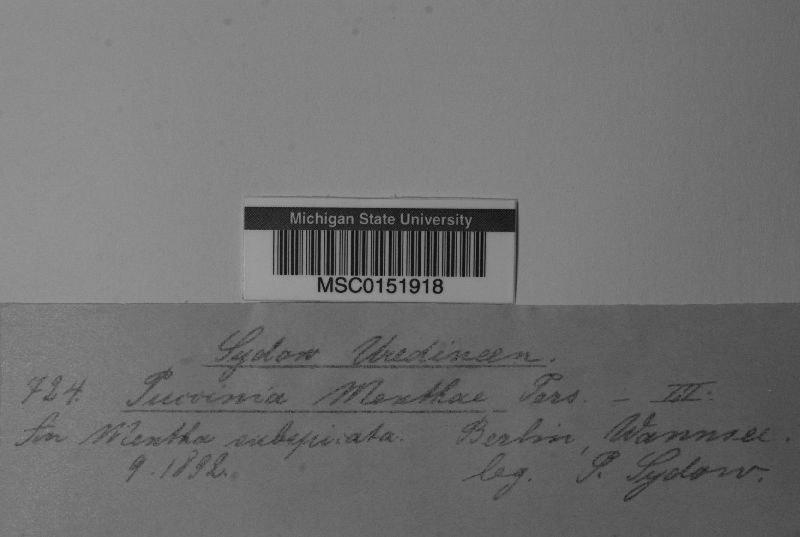 Michigan State University
MSC0151918
Sydow Uredineen.
724. Puccinia Menthae Pers. - III.
An Mentha subspicata. Berlin, Wannsee.
9. 1892. leg. P. Sydow.